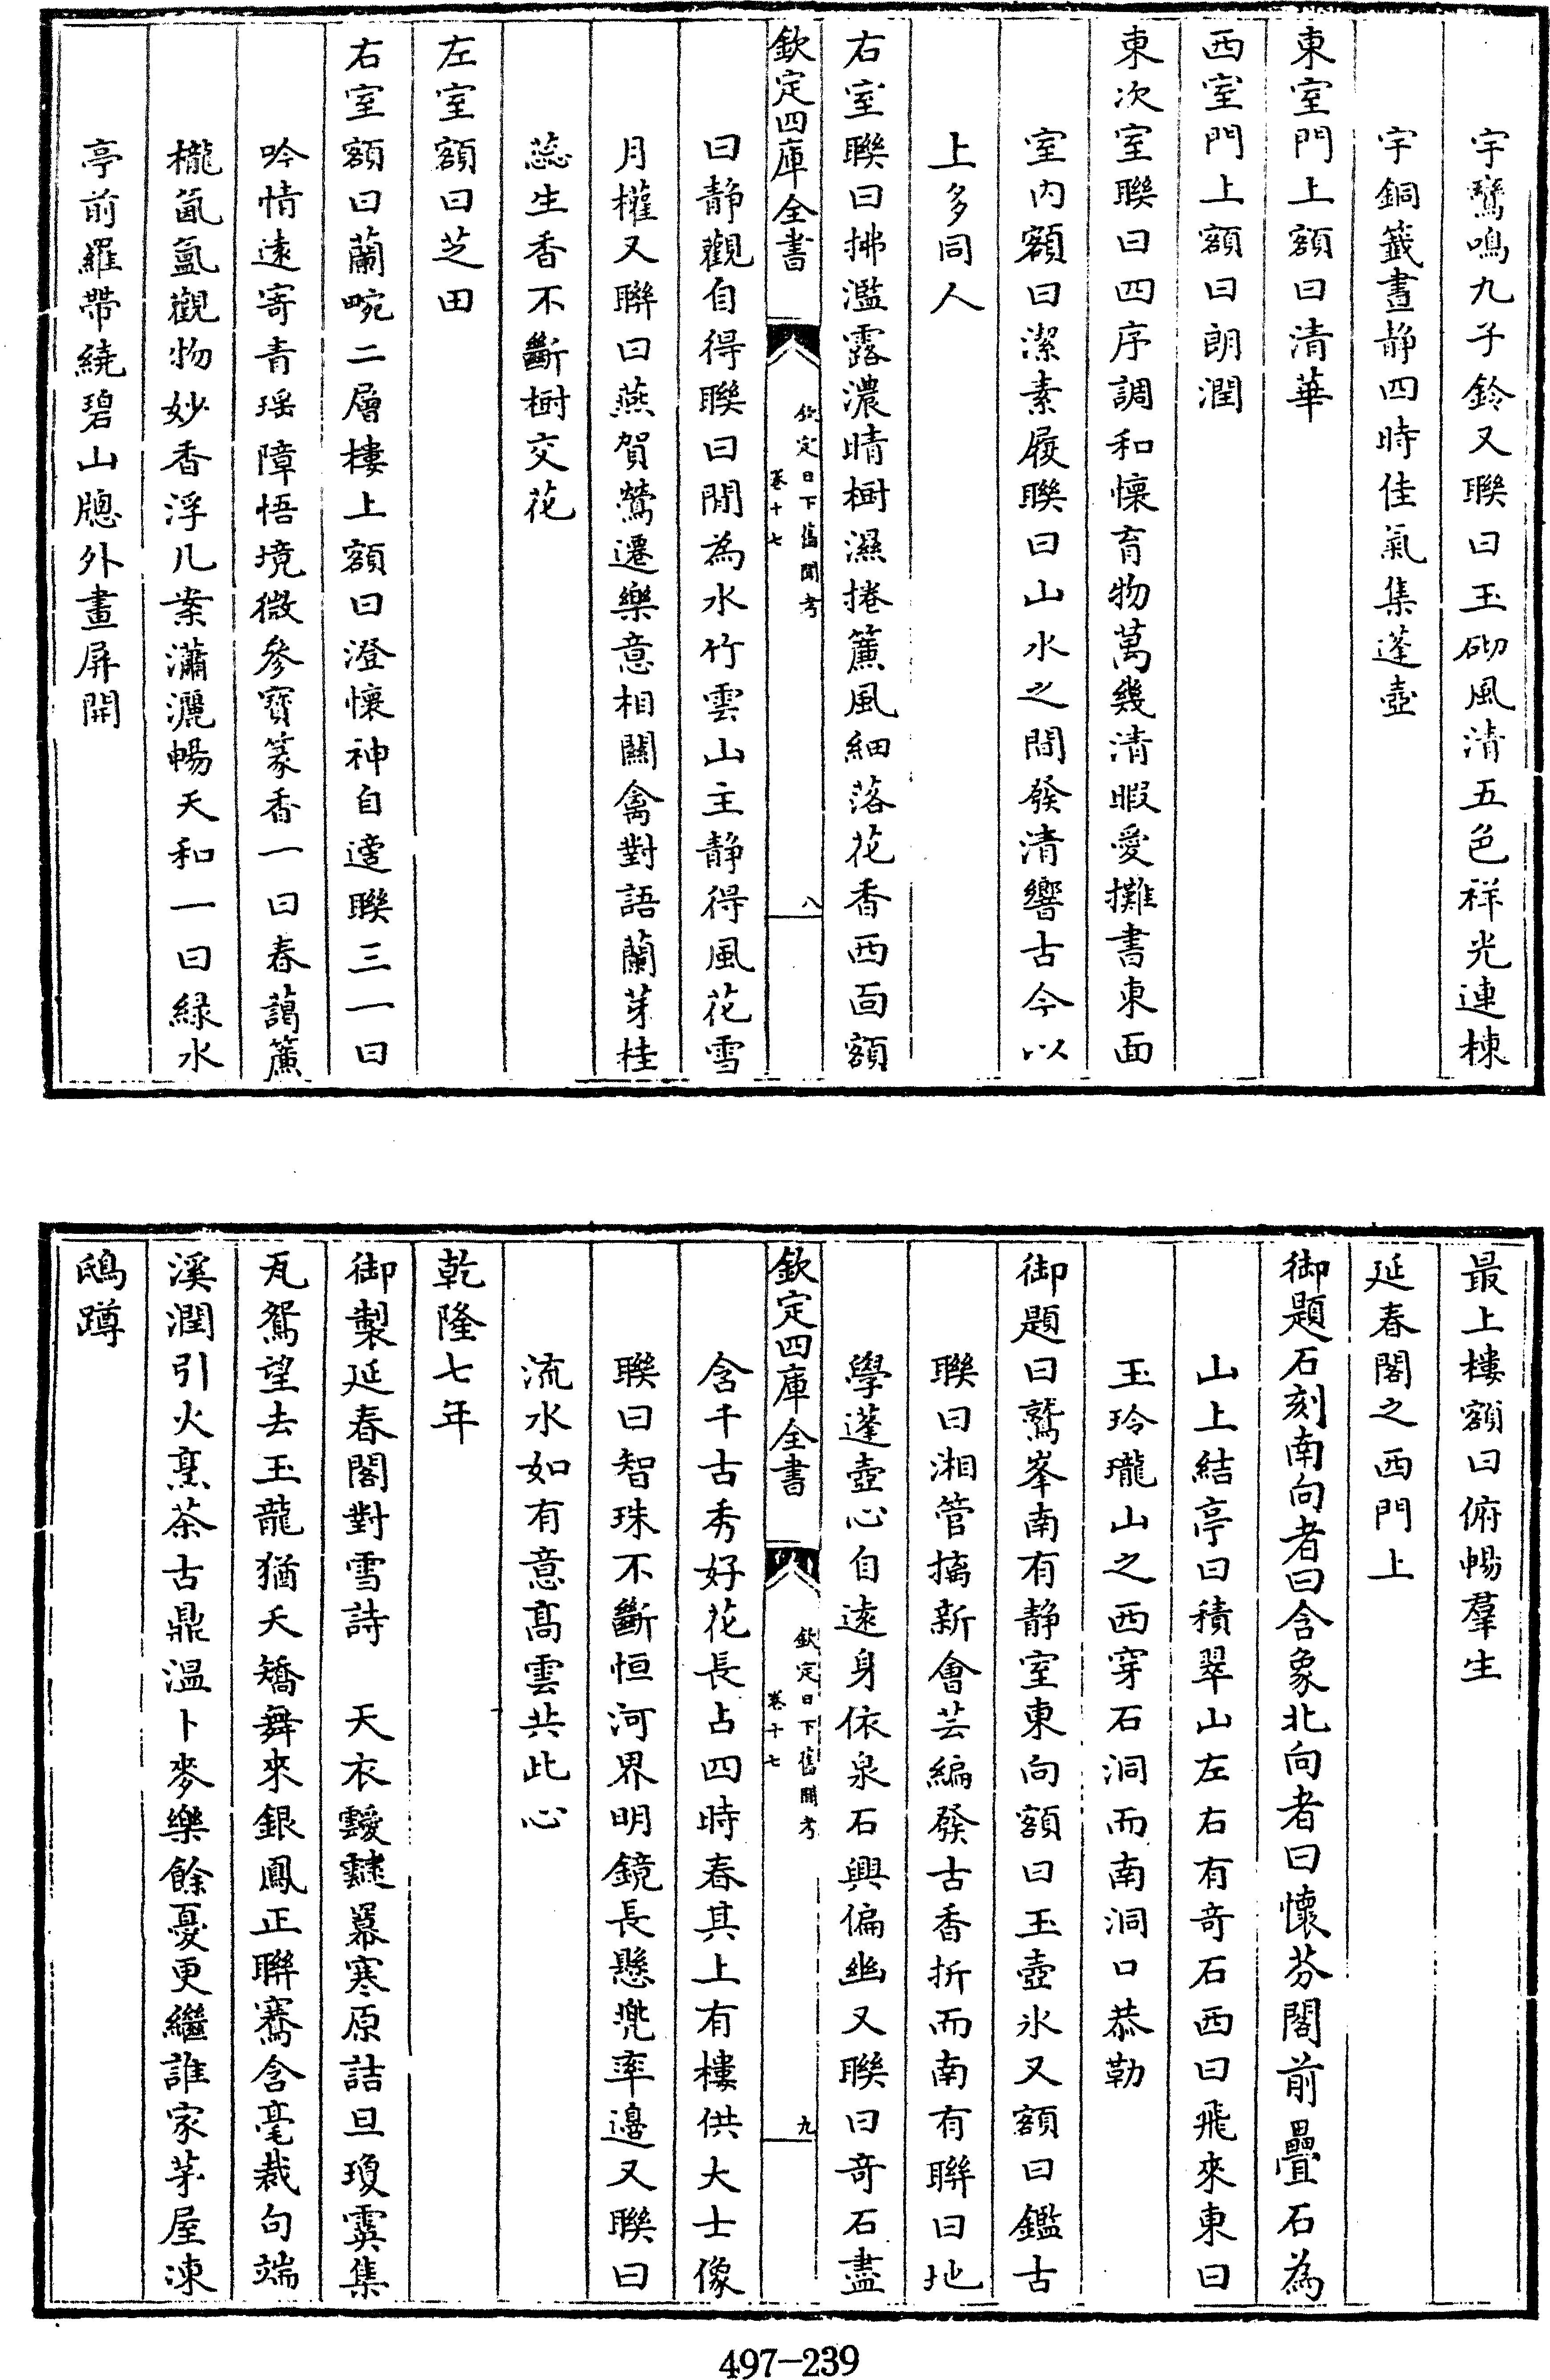 宇鸞鳴九子鈴又聯曰玉砌風清五色祥光連棟
宇銅籤晝静四時佳氣集蓬壺
東室門上額曰清華
西室門上額曰朗潤
東次室聯曰四序調和懷育物萬幾清暇愛攤書東面
室内額曰潔素履聯曰山水之間發清響古今以
上多同人
右室聯曰拂濫露濃晴樹濕捲簾風細落花香西面額
欽定四庫全書
欽定日下舊聞考
卷十七
八
曰静觀自得聯曰閒為水竹雲山主静得風花雪
月權又聯曰燕賀鶯遷樂意相關禽對語蘭芽桂
蕊生香不斷樹交花
左室額曰芝田
右室額曰蘭畹二層樓上額曰澄懷神自適聯三一曰
吟情遠寄青瑶障悟境微參寶篆香一曰春藹簾
櫳氤氲觀物妙香浮几案瀟灑暢天和一曰緑水
亭前羅帶繞碧山牕外畫屏開
最上樓額曰俯暢羣生
延春閣之西門上
御題石刻南向者曰含象北向者曰懷芬閣前疊石為
山上結亭曰積翠山左右有奇石西曰飛來東曰
玉玲瓏山之西穿石洞而南洞口恭勒
御題曰鷲峯南有静室東向額曰玉壺氷又額曰鑑古
聯曰湘管摛新會芸編發古香折而南有聯曰地
學蓬壺心自遠身依泉石興偏幽又聯曰奇石盡
欽定四庫全書
欽定日下舊聞考
卷十七
九
含千古秀好花長占四時春其上有樓供大士像
聯曰智珠不斷恒河界明鏡長懸兜率邊又聯曰
流水如有意髙雲共此心
乾隆七年
御製延春閣對雪詩　天衣靉靆羃寒原詰旦瓊霙集
瓦鴛望去玉龍猶夭矯舞來銀鳳正聯騫含毫裁句端
溪潤引火烹茶古鼎温卜麥樂餘憂更繼誰家茅屋凍
鴟蹲
497-239